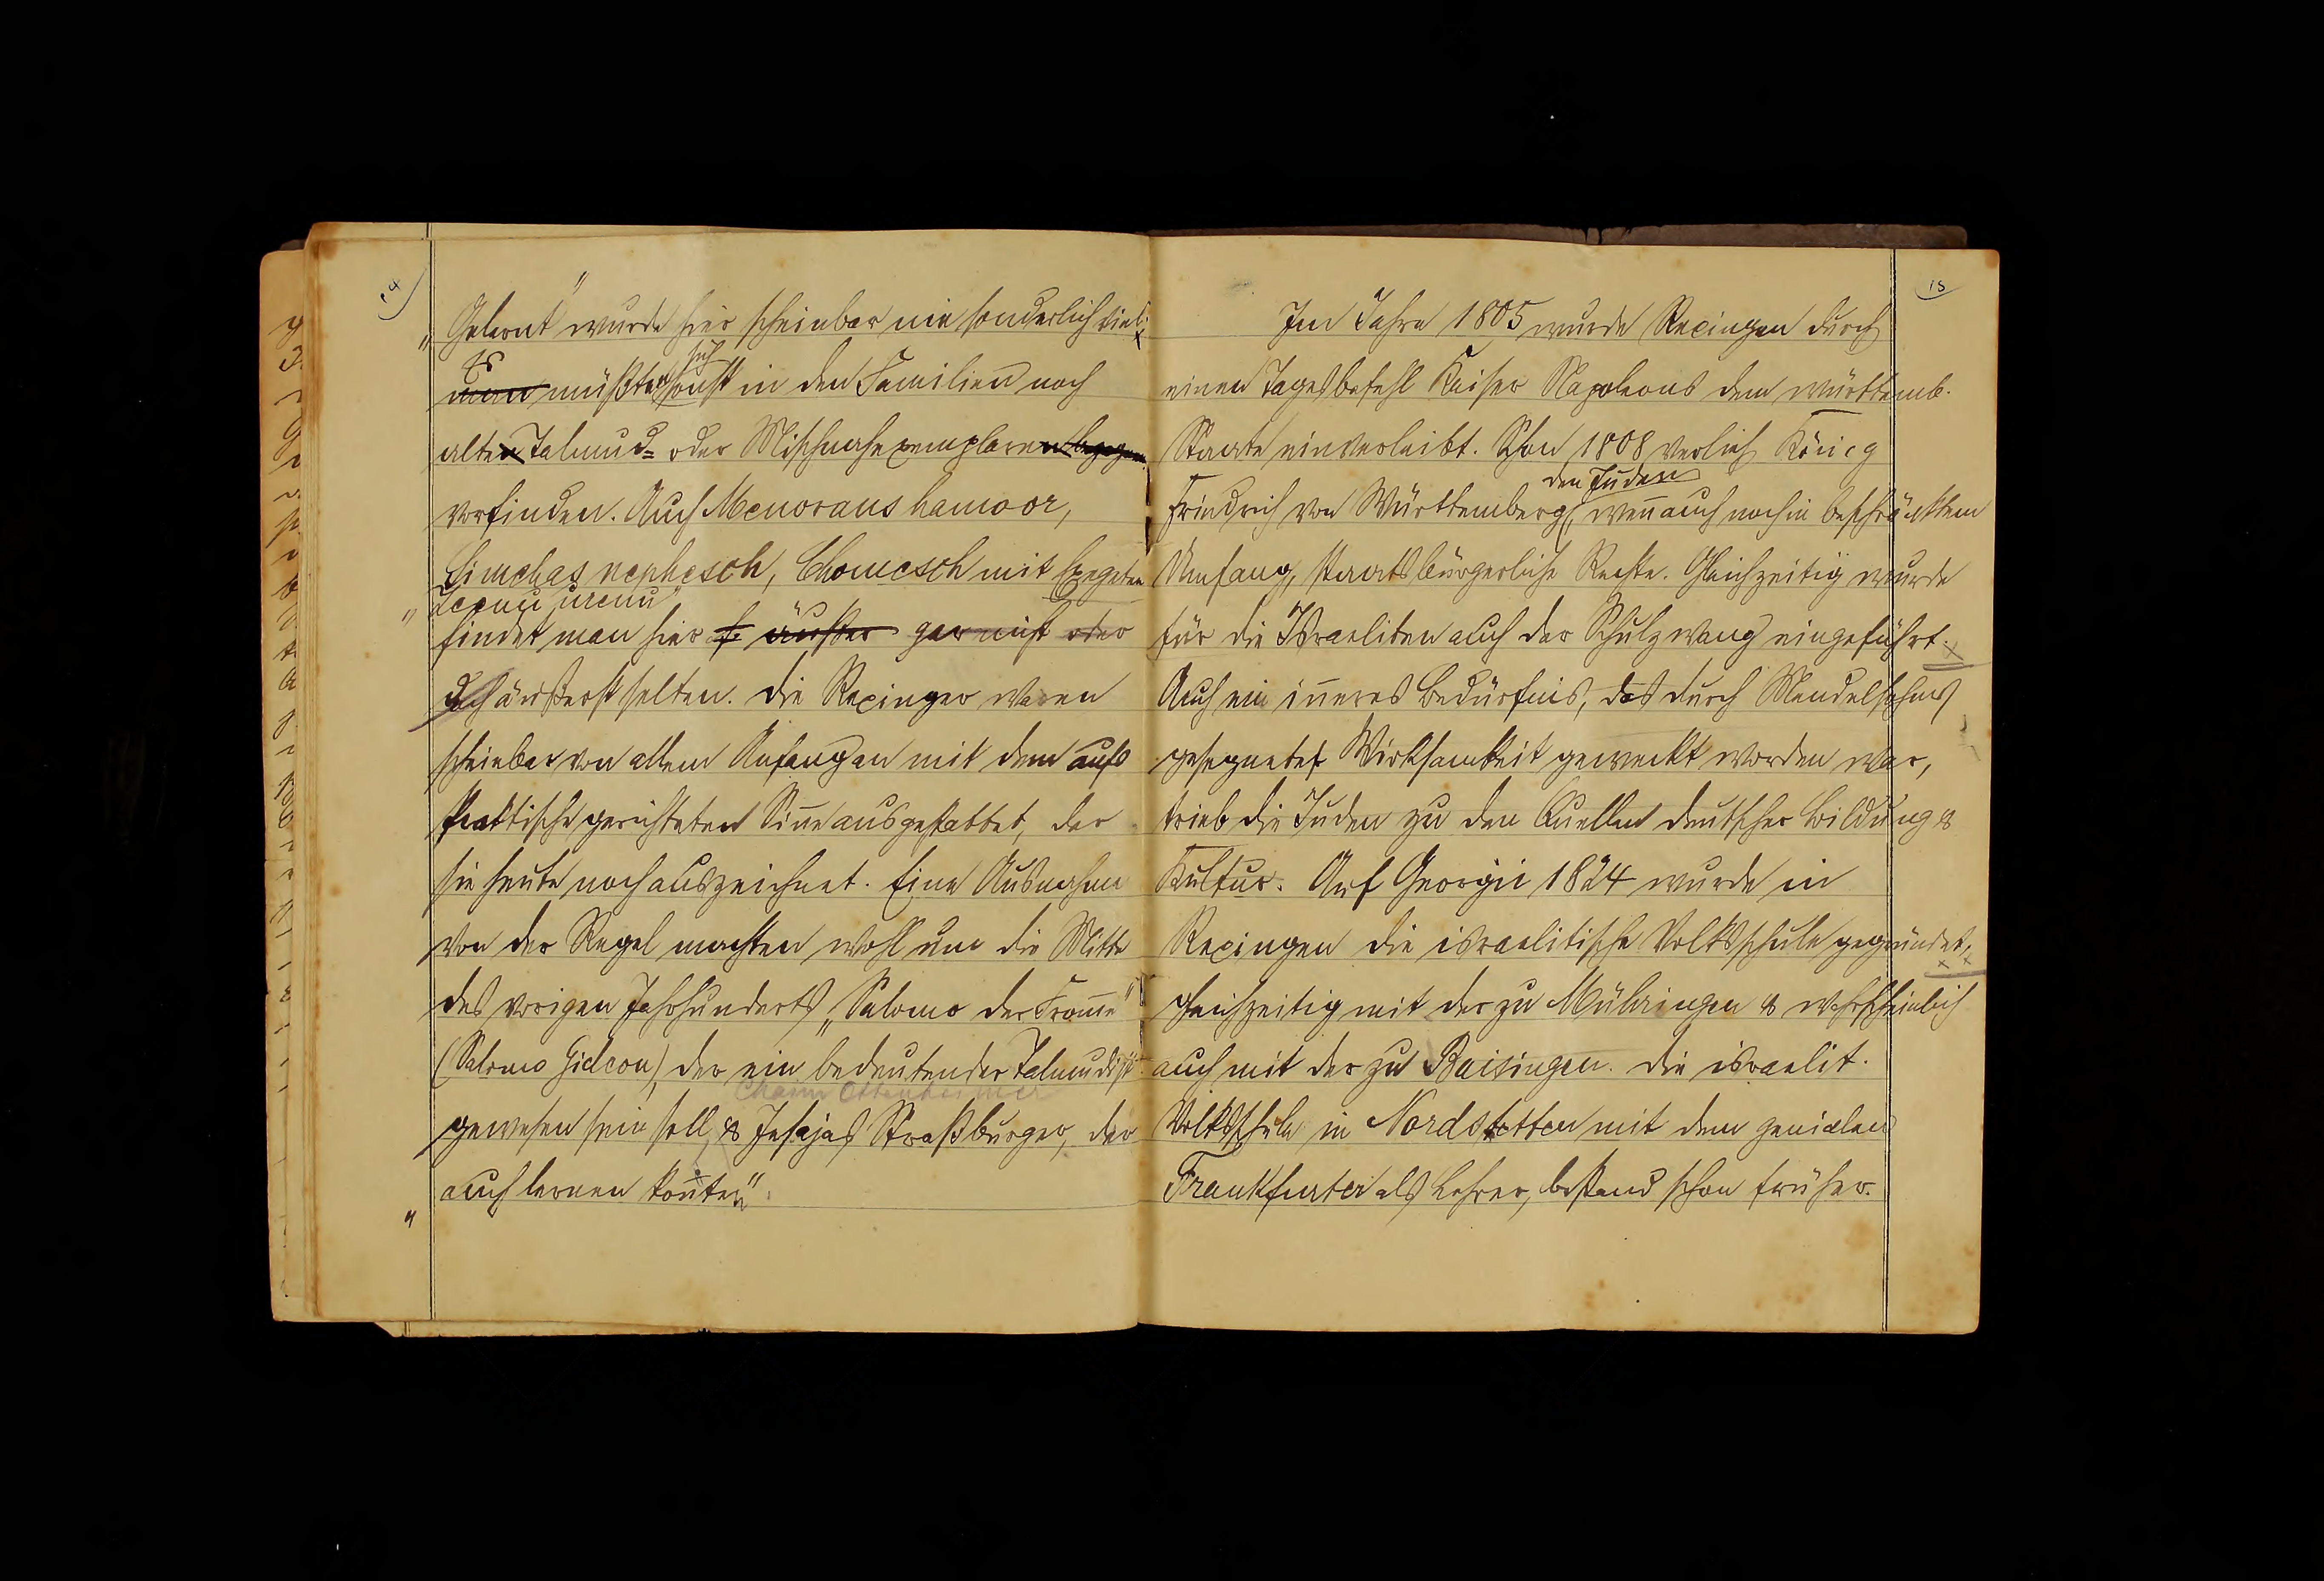 „Gelernt" wurde hier scheinbar nie sonderlich viel;
Es müßten sich sonst in den Familien noch
alte Talmud= oder Mischnahexemplare
vorfinden. Auch Menoraus hamoor,
Simchas nephesch, Chomesch mit Exegeten
„Zeenu urenu"
findet man hier gar nicht oder
doch äußerst selten. Die Rexinger waren
scheinbar von allem Anfang an mit dem aufs
Praktische gerichteten Sinne ausgestattet, der
sie heute noch auszeichnet. Eine Ausnahme
von der Regel machten wohl um die Mitte
des vorigen Jahrhunderts „Salomo der Fromme"
(Salomo Gideon), der ein bedeutender Talmudist
Chaim Ottenheimer
gewesen sein soll, & Jesajas Straßburger, der
auch „lernen konnte".
15
Im Jahre 1805 wurde Rexingen durch
einen Tagesbefehl Kaiser Napoleons dem württemb.
Staate einverleibt. Schon 1808 verlieh König
den Juden
Friedrich von Württemberg, wenn auch noch in beschränktem
Umfang, staatsbürgerliche Rechte. Gleichzeitig wurde
für die Israeliten auch der Schulzwang eingeführt.
Auch ein inneres Bedürfnis, das durch Mendelssohns
gesegnete Wirksamkeit geweckt worden war,
trieb die Juden zu den Quellen deutscher Bildung &
Kultur. Auf Georgii 1824 wurde in
Rexingen die israelitische Volksschule gegründet,
gleichzeitig mit der zu Mühringen & wahrscheinlich
auch mit der zu Baisingen. Die israelit.
Volksschule in Nordstetten mit dem genialen
Frankfurter als Lehrer, bestand schon früher.